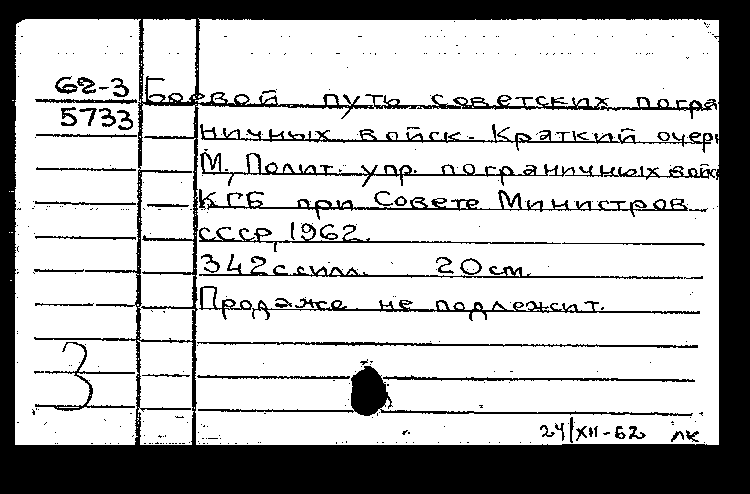 62-3 Боевой путь советских погра
5733 ничных войск. Краткий очер
М., Полит. упр. пограничных войс
КГБ при Совете Министров
СССР, 1962.
342 с с илл. 20 см.
Продаже не подлежит.
3
24/XII-62 лк